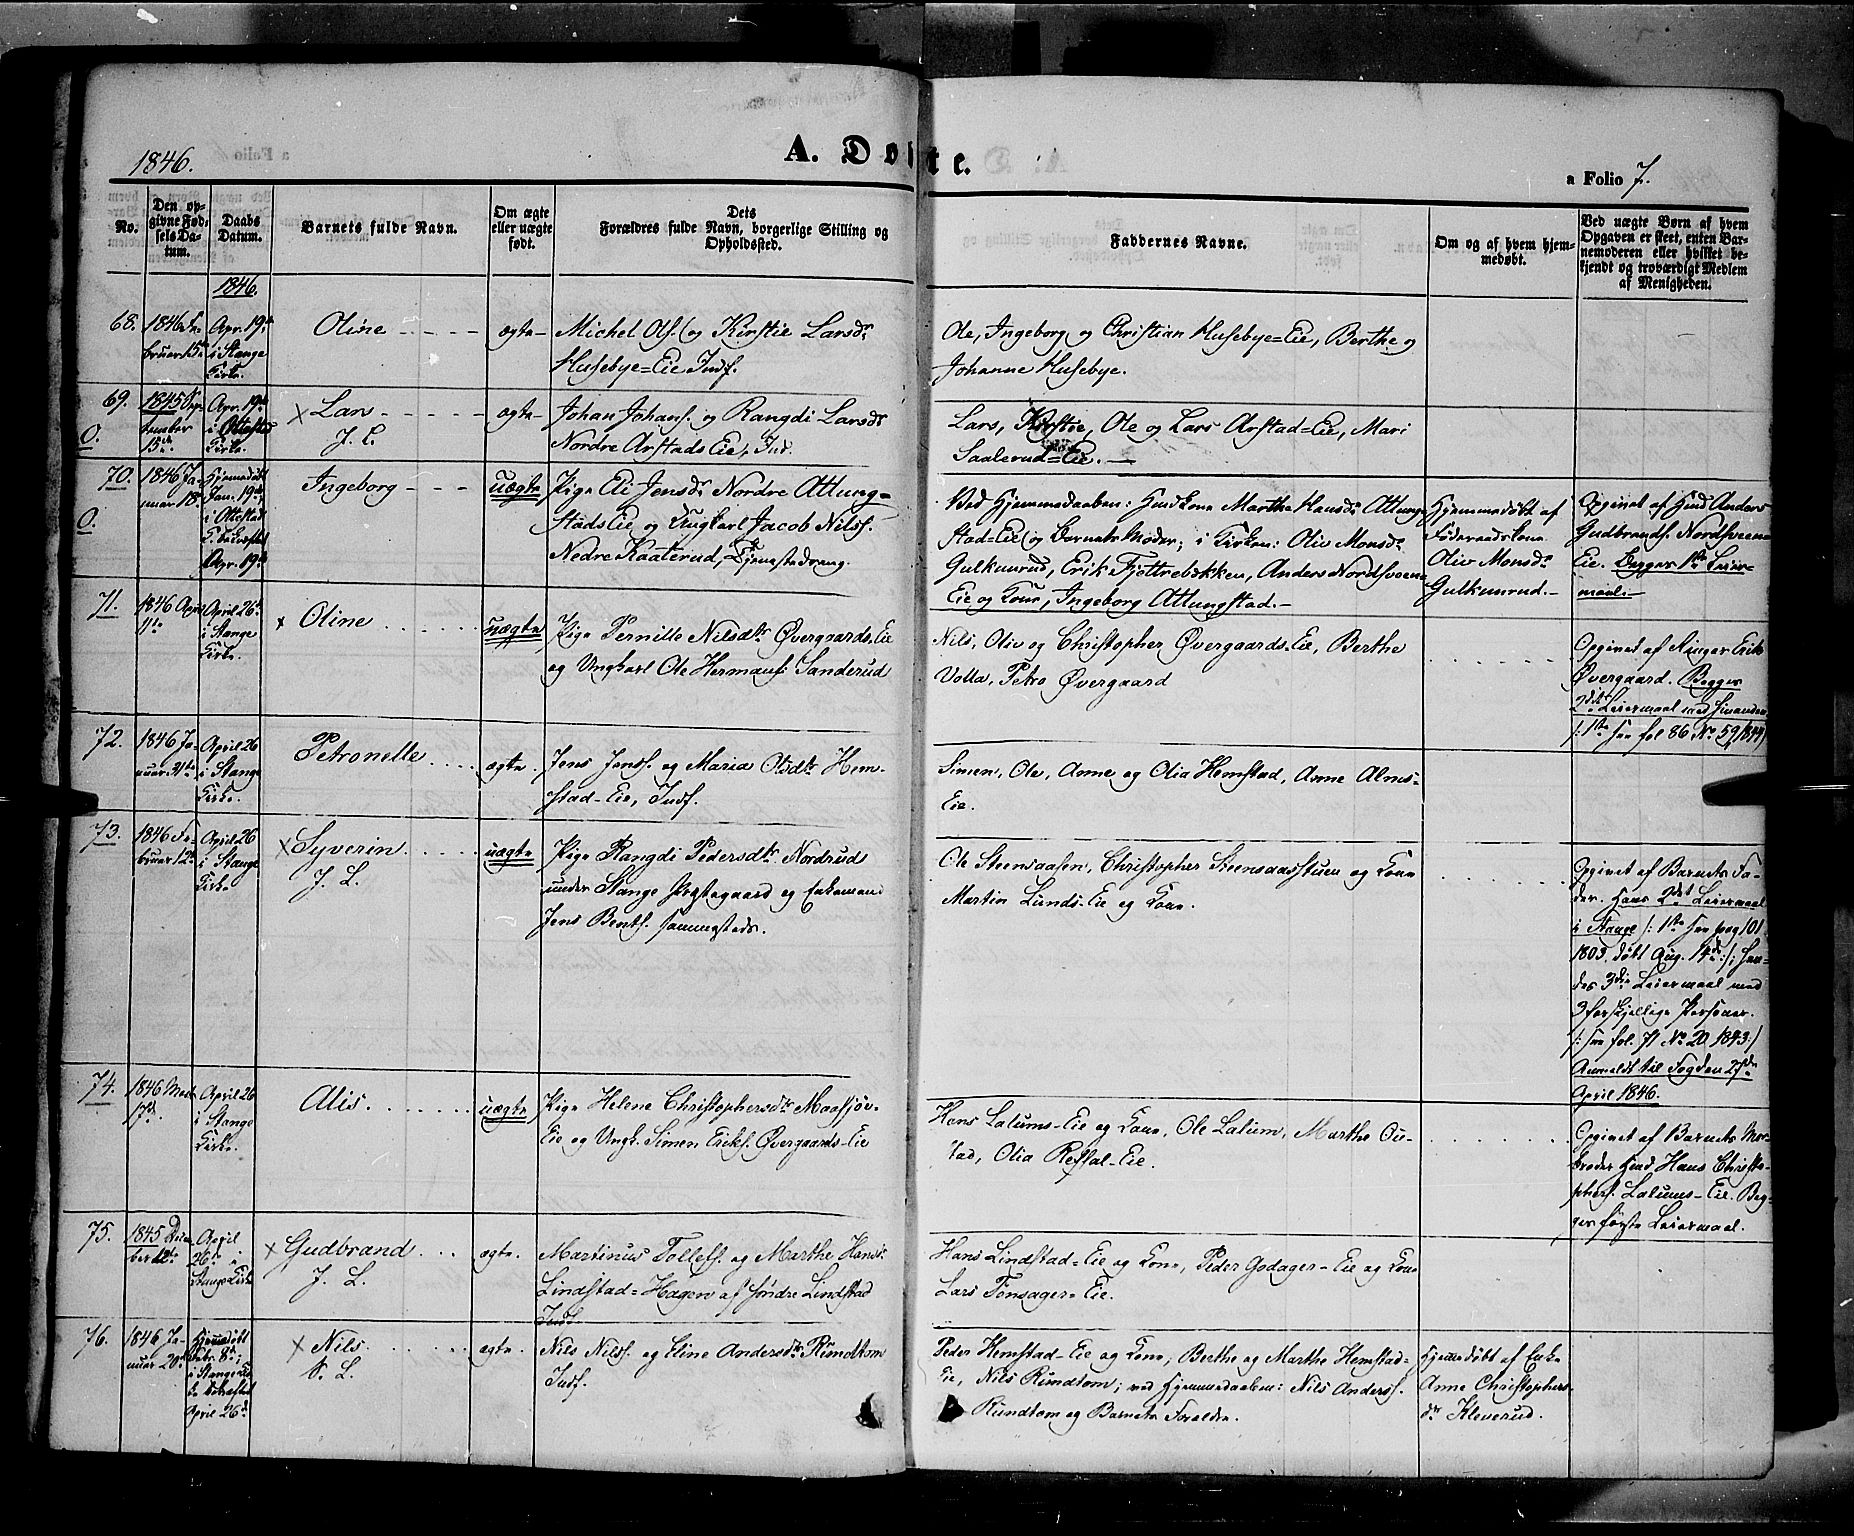 1846.
A. Døbte.
a Folio 7.
No.
Den opgivne Fødselsdatum.
Daabs Datum.
Barnets fulde Navn.
Om ægte eller uægte født.
Dets Forældres fulde Navn, borgerlige Stilling og Opholdssted.
Faddernes Navne.
Om og af hvem hjemmedøbt.
Ved uægte Børn af hvem Opgaven er skeet, enten Barnemoderen eller hvilket bekjendt og troværdigt Medlem af Menigheden.
1846.
68.
1846 Februer 15de
Apr. 19de
i Stange
Kirke.
Oline
ægte
Michel Ols. og Kirstie Larsdr
Husebye=Eie Inds.
Ole, Ingeborg og Christian Husebye=Eie, Berthe og
Johanne Husebye.
69.
O.
1845 September
15de
Apr. 19de
i Ottestad
Kirke.
× Lars
J. L.
ægte
Johan Johans. og Rangdi Larsdr
Nordre Arstads Eie, Ind.
Lars, Kirstie, Ole og Lars Arstad=Eie, Mari
Saalerud=Eie.
70.
O.
1846 Januar 18.
Hjemmedøbt
Jan. 19de
i Ottestad
K. bekræftet
Apr. 19de
Ingeborg
uægte
Pige Eli Jensdr Nordre Attung=
stads Eie og Ungkarl Jacob Nils.
Nedre Kaaterud, Tjenestedreng.
Ved Hjemmedaaben: Huskone Marthe Hansdr Attung
stad=Eie og Barnets Moder; i Kirken: Oliv Monsdr
Gulkunrud, Erik Fjettrebakken, Anders Nordsveen
Eie og Kone, Ingeborg Attungstad.
Hjemmedøbt af
Føderaadskone
Oliv Monsdr
Gulkunrud.
Opgivet af Husmd Anders
Gudbrands. Nordsveen
Eie. Begges 1ste Leier=
maal.
71.
1846 April
11te
April 26de
i Stange
Kirke.
× Oline
uægte
Pige Pernille Nilsdtr Øvergaards Eie
og Ungkarl Ole Hermans. Sanderud
Nils, Oliv og Christopher Øvergaards Eie, Berthe
Volla, Petra Øvergaard
Opgivet af Ringer Erik
Øvergaard. Begges
2det Leiermaal med hinanden
/: 1ste see fol 86 No 59 1844
72.
1846 Januar 21de
April 26
i Stange
Kirke.
Petronelle
ægte.
Jens Jens. og Maria Olsdtr Hem=
stad=Eie, Inds.
Simen, Ole, Anne og Olia Hemstad, Anne Alms=
Eie.
73.
1846 Februer 12te
April 26
i Stange
Kirke.
× Syverin
J. L.
uægte
Pige Rangdi Pedersdtr Nordruds
under Stange Præstegaard og Enkemand
Jens Bents. sammesteds.
Ole Steensaasen, Christopher Steensaasstuen og Kone
Martin Lunds=Eie og Kone.
Opgivet af Barnets Fa=
der. Hans 2det Leiermaal
i Stange /: 1ste see pag 101
1803. døbt Aug. 14de :/; hen=
des 3die Leiermaal med
3 forskjellige Personer.
/: see fol. 71 No 20 1843 :/
Anmeldt til Fogden 27de
April 1846.
74.
1846 Marts
17de
April 26
i Stange
Kirke.
Alis.
uægte
Pige Helene Christophersdtr Maasjøv=
Eie og Ungk. Simen Eriks. Øvergaards=Eie
Hans Lalums=Eie og Kone, Ole Lalum, Marthe Ou=
stad, Olia Refsal=Eie.
Opgivet af Barnets Mor=
broder Husmd Hans Christo=
phers. Lalums=Eie. Beg=
ges første Leiermaal.
75.
1845 December 12te
April
26de i
Stange Kirke
× Gudbrand
J. L.
ægte.
Martinus Tollefs. og Marthe Hansdtr
Lindstad=Hagen af søndre Lindstad
Inds.
Hans Lindstad=Eie og Kone, Peder Godager=Eie og Kone
Lars Tonsager=Eie.
76.
1846 Januer 20de
Hjemmedøbt
Febr. 8de;
i Stange Kirke
bekræftet
April 26de
× Nils
S. L.
ægte.
Nils Nils. og Eline Andersdtr Rundtom
Inds.
Peder Hemstad=Eie og Kone; Berthe og Marthe Hemstad=
Eie, Nils Rundtom; ved Hjemmedaaben: Nils Anders.
Rundtom og Barnets Forældre.
Hjemmedøbt af Enke
Anne Christophers
dtr Kleverud.